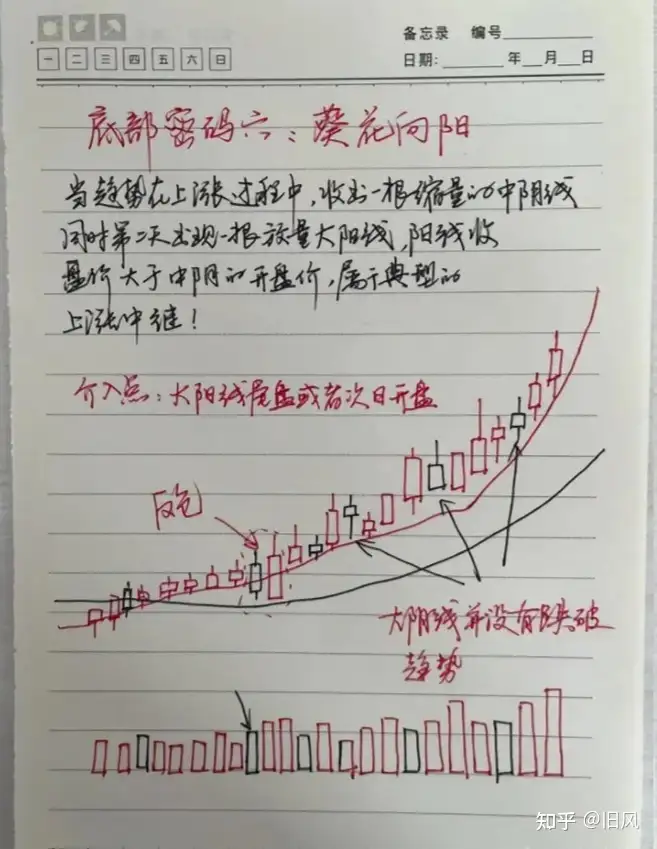 备忘录 编号
一 二 三 四 五 六 日
日期: 年 月 日
底部密码六：葵花向阳
当趋势在上涨过程中，收出一根缩量的中阴线
同时第二天出现一根放量大阳线，阳线收
盘价大于中阴的开盘价，属于典型的
上涨中继！
介入点：大阳线尾盘或者次日开盘
反包
大阴线并没有跌破
趋势
知乎 @旧风